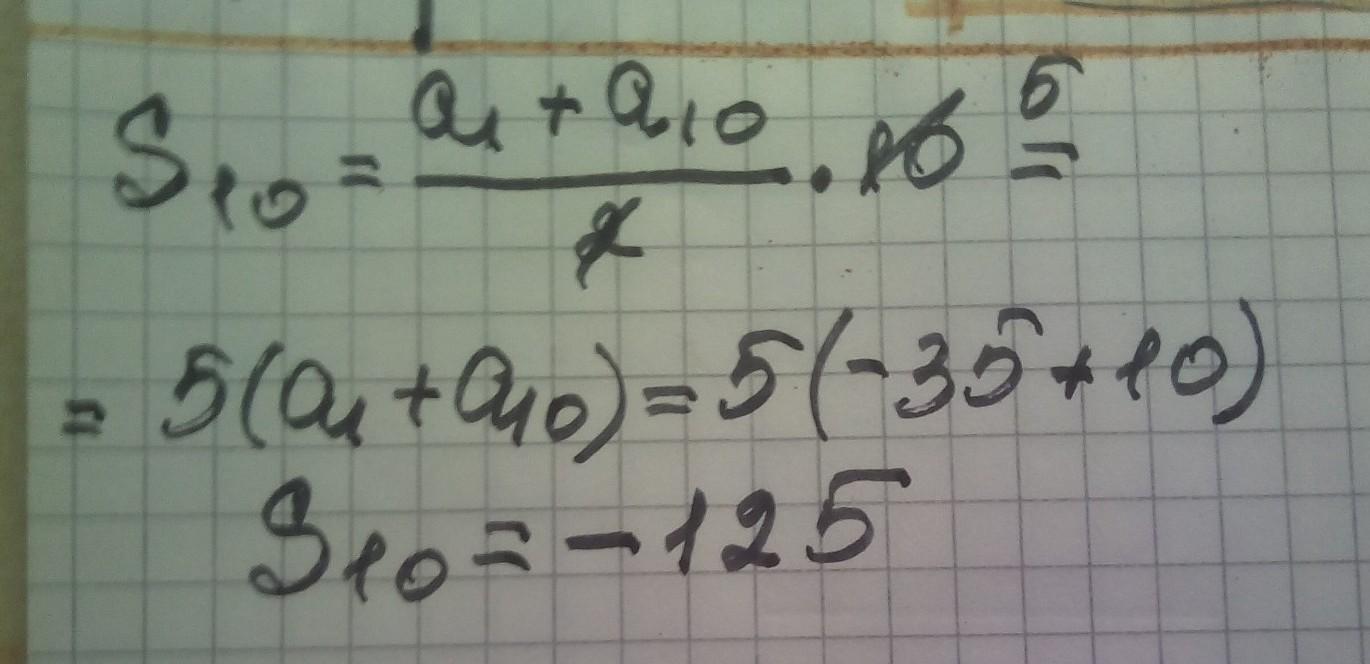 S₁₀ = (a₁ + a₁₀)/2 · 10 5 =
= 5(a₁ + a₁₀) = 5(-35 + 10)
S₁₀ = -125